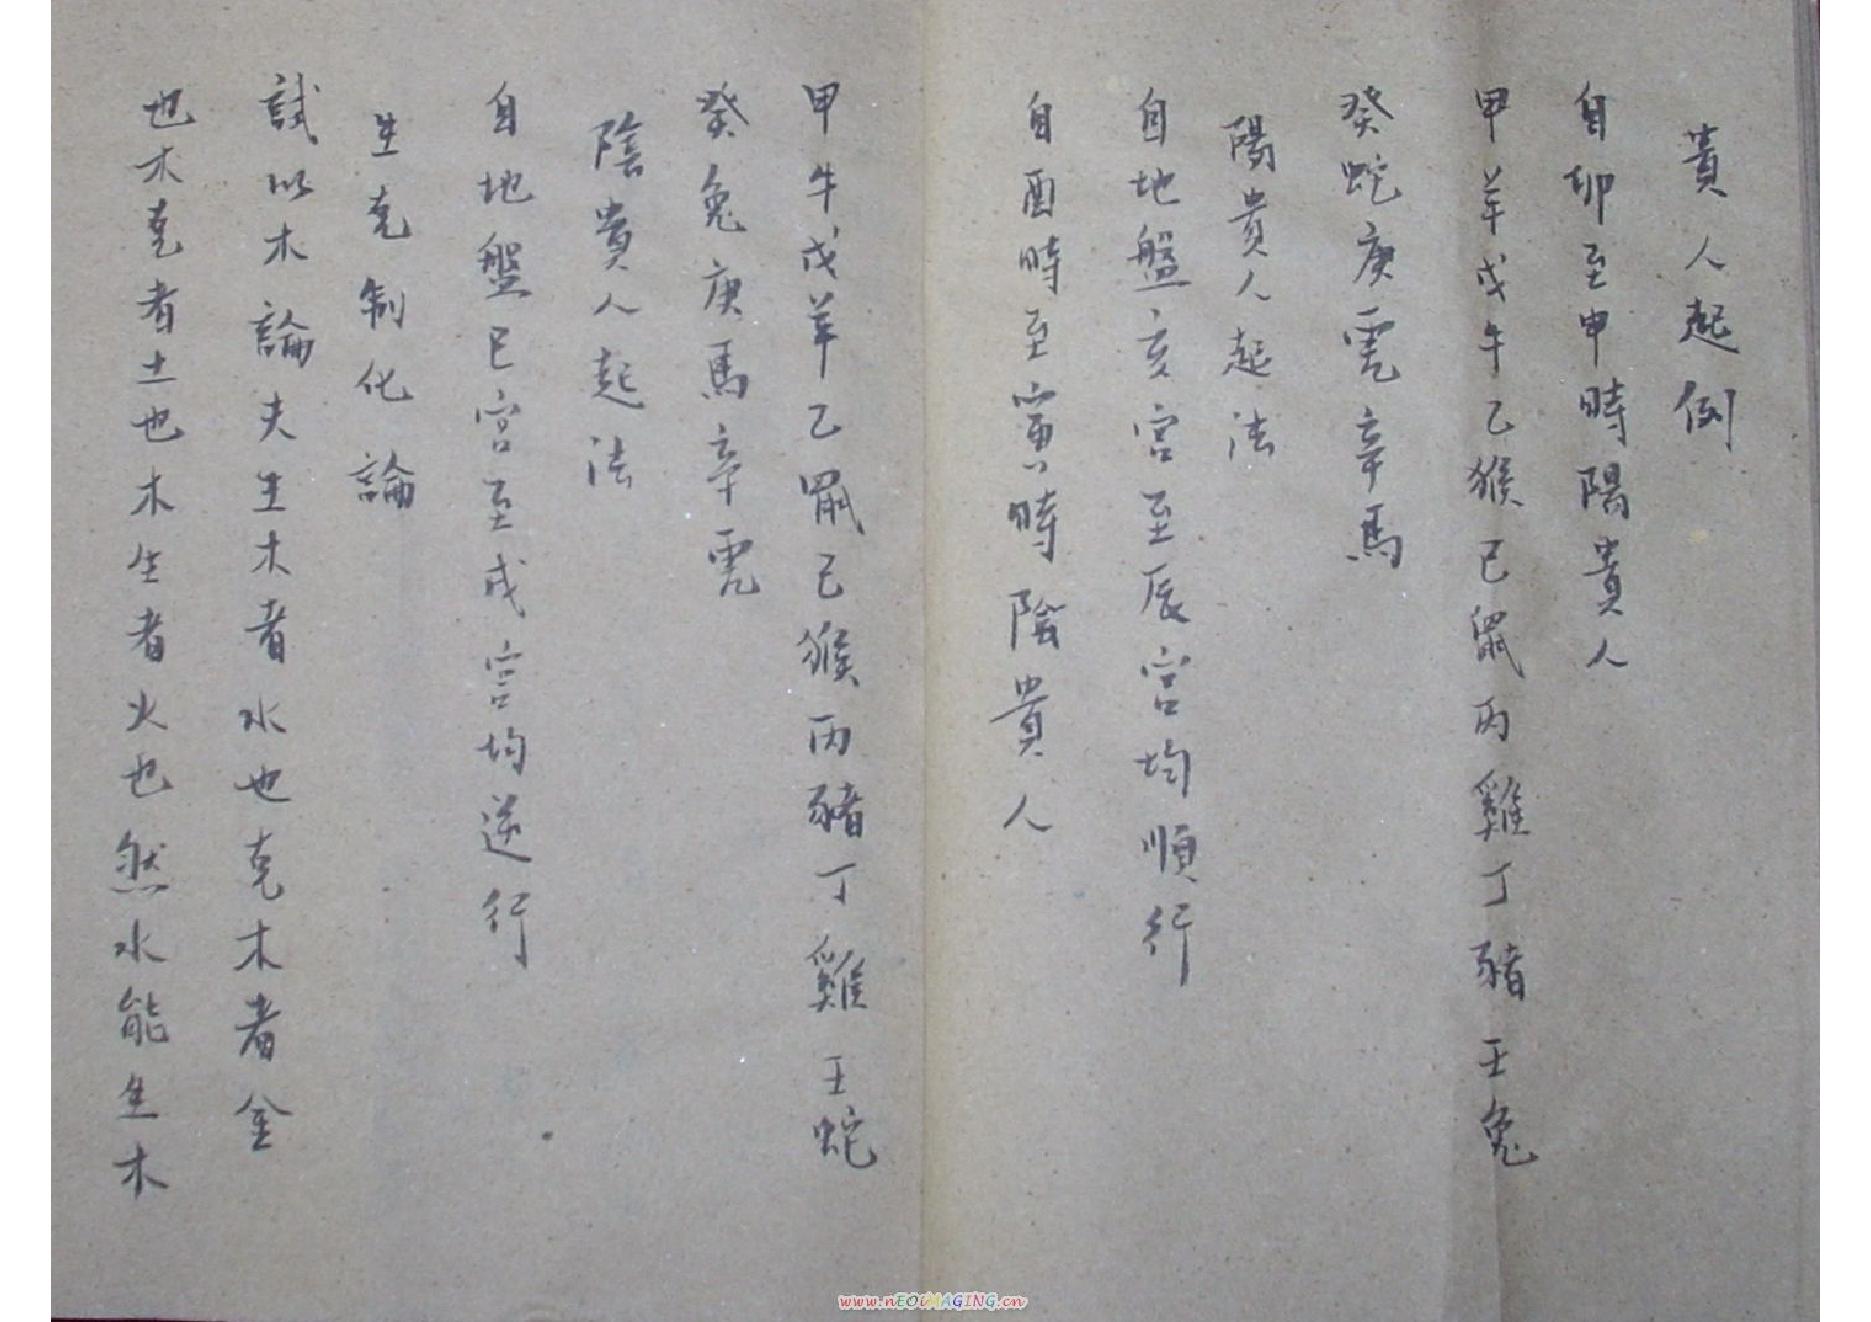 貴人起例
自卯至申時陽貴人
甲羊戊牛乙猴己鼠丙雞丁豬壬兔
癸蛇庚虎辛馬
陽貴人起法
自地盤亥宮至辰宮均順行
自酉時至寅時陰貴人
甲牛戊羊乙鼠己猴丙豬丁雞壬蛇
癸兔庚馬辛虎
陰貴人起法
自地盤巳宮至戌宮均逆行
生克制化論
試以木論夫生木者水也克木者金
也木克者土也木生者火也然水能生木
www.nEOiMAGING.cn